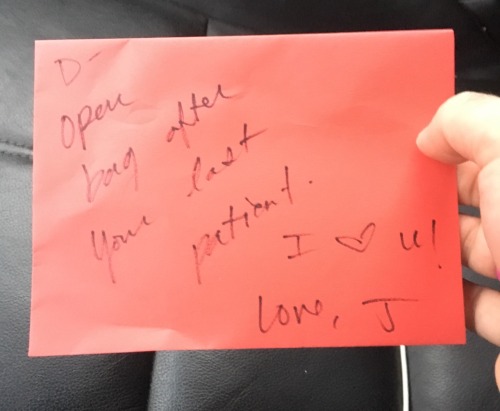 D-
Open
bag after
your last
patient.
I ♡ u!
Love, J